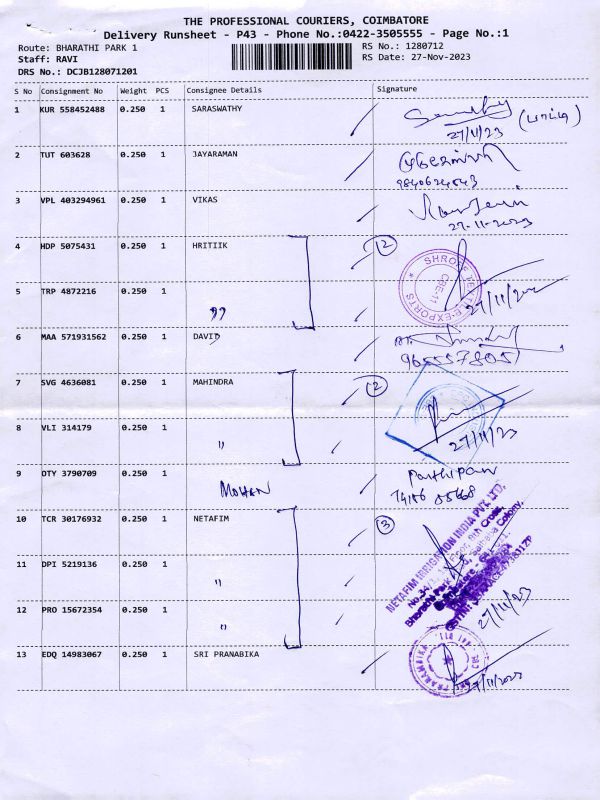 THE PROFESSIONAL COURIERS, COIMBATORE
Delivery Runsheet - P43 - Phone No.:0422-3505555 - Page No.:1
Route: BHARATHI PARK 1 RS No.: 1280712
Staff: RAVI RS Date: 27-Nov-2023
DRS No.: DCJB128071201
S No Consignment No Weight PCS Consignee Details Signature
1 KUR 558452488 0.250 1 SARASWATHY
27/11/23
2 TUT 603628 0.250 1 JAYARAMAN
3 VPL 403294961 0.250 1 VIKAS
27-11-2023
4 HDP 5075431 0.250 1 HRITIIK 2
SHROFF TEXTILE EXPORTS
CBE-11
5 TRP 4872216 0.250 1 "
6 MAA 571931562 0.250 1 DAVID
7 SVG 4636081 0.250 1 MAHINDRA 2
8 VLI 314179 0.250 1 "
27/11/23
9 OTY 3790709 0.250 1 MOHAN Parthipan
10 TCR 30176932 0.250 1 NETAFIM 3
NETAFIM IRRIGATION INDIA PVT. LTD.
11 DPI 5219136 0.250 1 "
12 PRO 15672354 0.250 1 "
27/11/23
13 EDQ 14983067 0.250 1 SRI PRANABIKA
27/11/2023